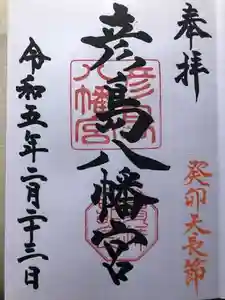 奉拝
癸卯 天長節
彦島八幡宮
彦島八幡宮
令和五年二月二十三日